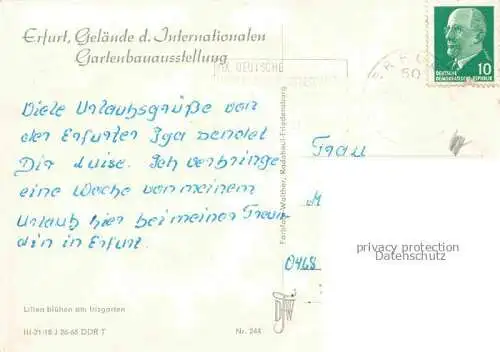 Erfurt, Gelände d. Internationalen
Gartenbauausstellung
IX. DEUTSCHE
ERFU
50
10
DEUTSCHE
DEMOKRATISCHE REPUBLIK
Viele Urlaubsgrüße von
der Erfurter Iga sendet
Dir Luise. Ich verbringe
eine Woche von meinem
Urlaub hier bei meiner Freun-
din in Erfurt.
Farbfoto-Walther, Radebeul-Friedensburg
Frau
M
0468
privacy protection
Datenschutz
Lilien blühen am Irisgarten
III-21-18 J 26-66 DDR T
Nr. 244